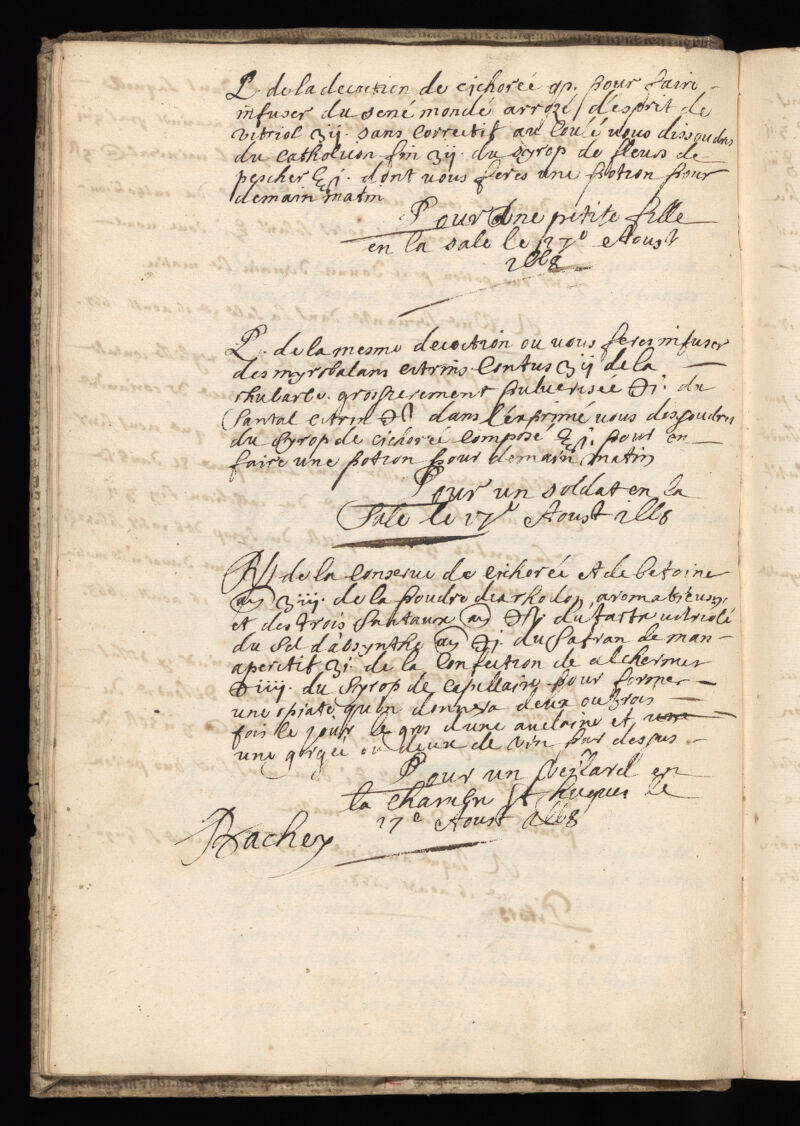 ℞ de la decoction de cichorée qp. pour faire
infuser du sené mondé arrozé d'esprit de
vitriol ʒij. sans correctif au coulé vous dissoudres
du catholicon fin ʒij. du syrop de fleurs de
pescher ℥j. dont vous feres une potion pour
demain matin
Pour une petite fille
en la sale le 27e Aoust
1668
℞ de la mesme decoction ou vous feres infuser
des myrobalans citrins contus ʒij de la
rhubarbe grossierement pulverisee ℈j. du
santal citrin ℈ß dans l'exprimé vous dissoudres
du syrop de cichorée composé ℥j. pour en
faire une potion pour demain matin
Pour un soldat en la
sale le 27e Aoust 1668
℞ de la conserve de cichorée et de betoine
an ʒiij. de la poudre diarhodon aromaticum
et des trois santaux an du tartre vitriolé
du sel d'absynthe an ℈j. du safran de mars
aperitif ʒi. de la confection de alchermes
℈iiij. du syrop de capillaire pour former
une opiate qu'on donnera deux ou trois
fois le jour le gros d'une aveline et une
une gorgée ou deux de vin par dessus
Pour un vieillard en
la chambre St hugues le
27e Aoust 1668
Rachey